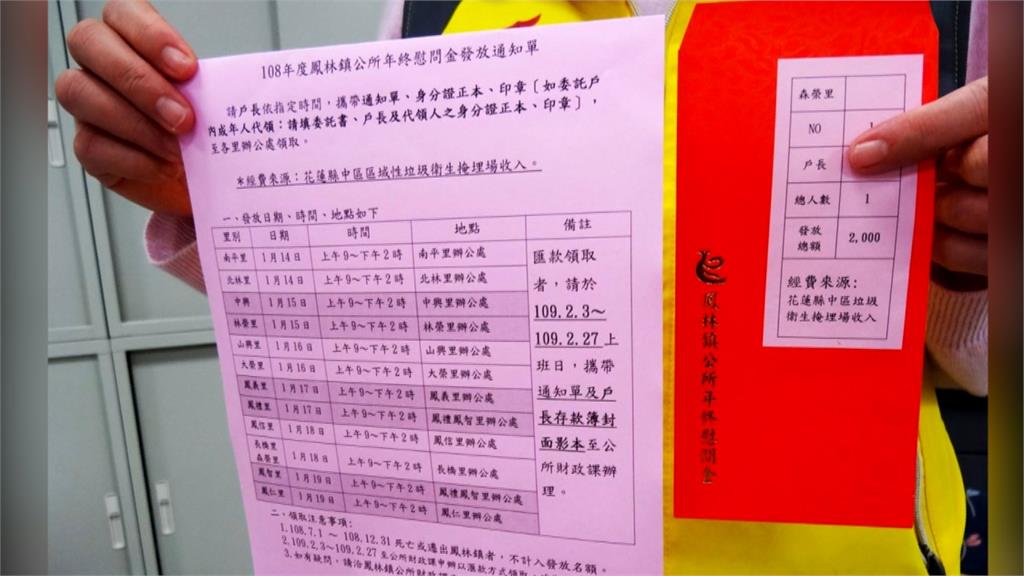 108年度鳳林鎮公所年終慰問金發放通知單
請戶長依指定時間,攜帶通知單、身分證正本、印章〔如委託戶
內成年人代領:請填委託書、戶長及代領人之身分證正本、印章〕,
至各里辦公處領取。
＊經費來源:花蓮縣中區區域性垃圾衛生掩埋場收入。
一、發放日期、時間、地點如下
里別 日期 時間 地點 備註
南平里 1月14日 上午9～下午2時 南平里辦公處
北林里 1月14日 上午9～下午2時 北林里辦公處
中興 1月15日 上午9～下午2時 中興里辦公處
林榮里 1月15日 上午9～下午2時 林榮里辦公處
山興里 1月16日 上午9～下午2時 山興里辦公處
大榮里 1月16日 上午9～下午2時 大榮里辦公處
鳳義里 1月17日 上午9～下午2時 鳳義里辦公處
鳳禮里 1月17日 上午9～下午2時 鳳禮鳳智里辦公處
鳳信里 1月18日 上午9～下午2時 鳳信里辦公處
長橋里
森榮里 1月18日 上午9～下午2時 長橋里辦公處
鳳智里 1月19日 上午9～下午2時 鳳禮鳳智里辦公處
鳳仁里 1月19日 上午9～下午2時 鳳仁里辦公處
匯款領取
者,請於
109.2.3～
109.2.27上
班日,攜帶
通知單及戶
長存款簿封
面影本至公
所財政課辦
理。
二、領取注意事項:
1.108.7.1 ～ 108.12.31 死亡或遷出鳳林鎮者,不計入發放名額。
2.109.2.3～109.2.27 至公所財政課申辦以匯款方式領取
3.如有疑問,請洽鳳林鎮公所財政課
森榮里
NO 1
戶長
總人數 1
發放
總額 2,000
經費來源:
花蓮縣中區垃圾
衛生掩埋場收入
鳳林鎮公所年終慰問金